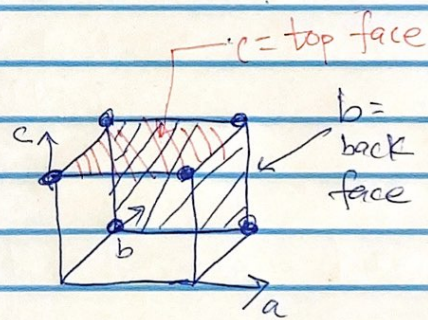 c = top face
b =
back
face
c
b
a